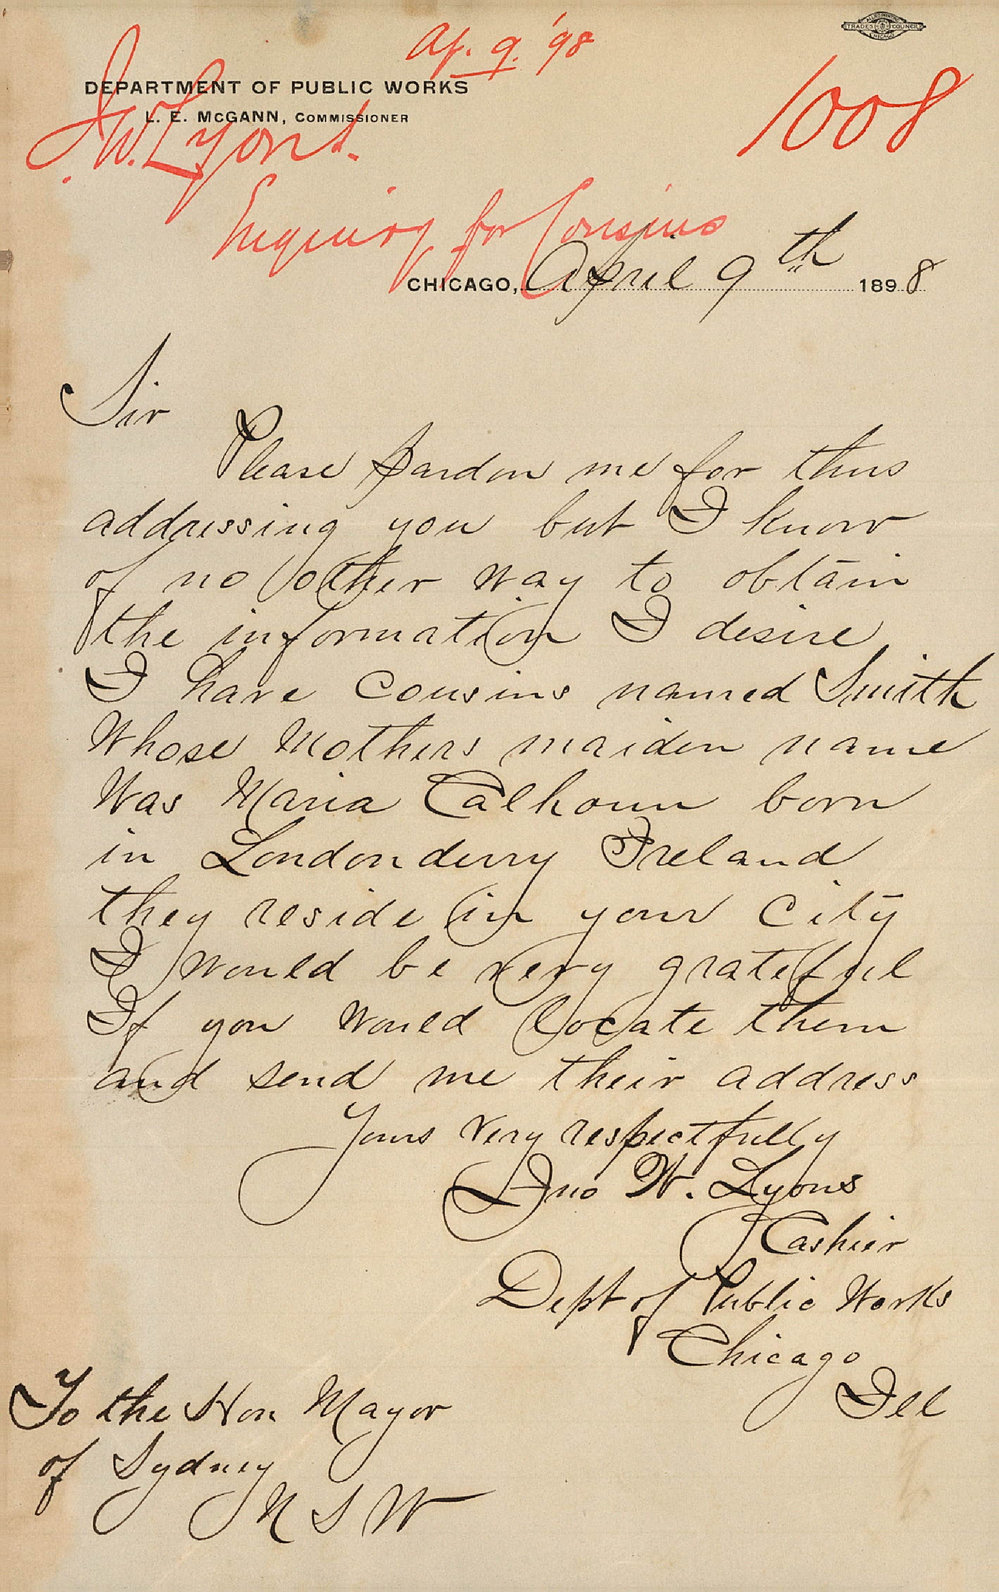 Ap. 9. '98
DEPARTMENT OF PUBLIC WORKS
L. E. McGANN, COMMISSIONER
J. W. Lyons.
1008
Inquiry for Cousins
CHICAGO, April 9th 1898
Sir
Please pardon me for thus
addressing you but I know
of no other way to obtain
the information I desire
I have cousins named Smith
Whose Mothers maiden name
Was Maria Calhoun born
in Londonderry Ireland
they reside in your City
I would be very grateful
If you would locate them
and send me their address
Yours Very respectfully
Jno W. Lyons
Cashier
Dept of Public Works
Chicago
Ill
To the Hon Mayor
of Sydney
N S W